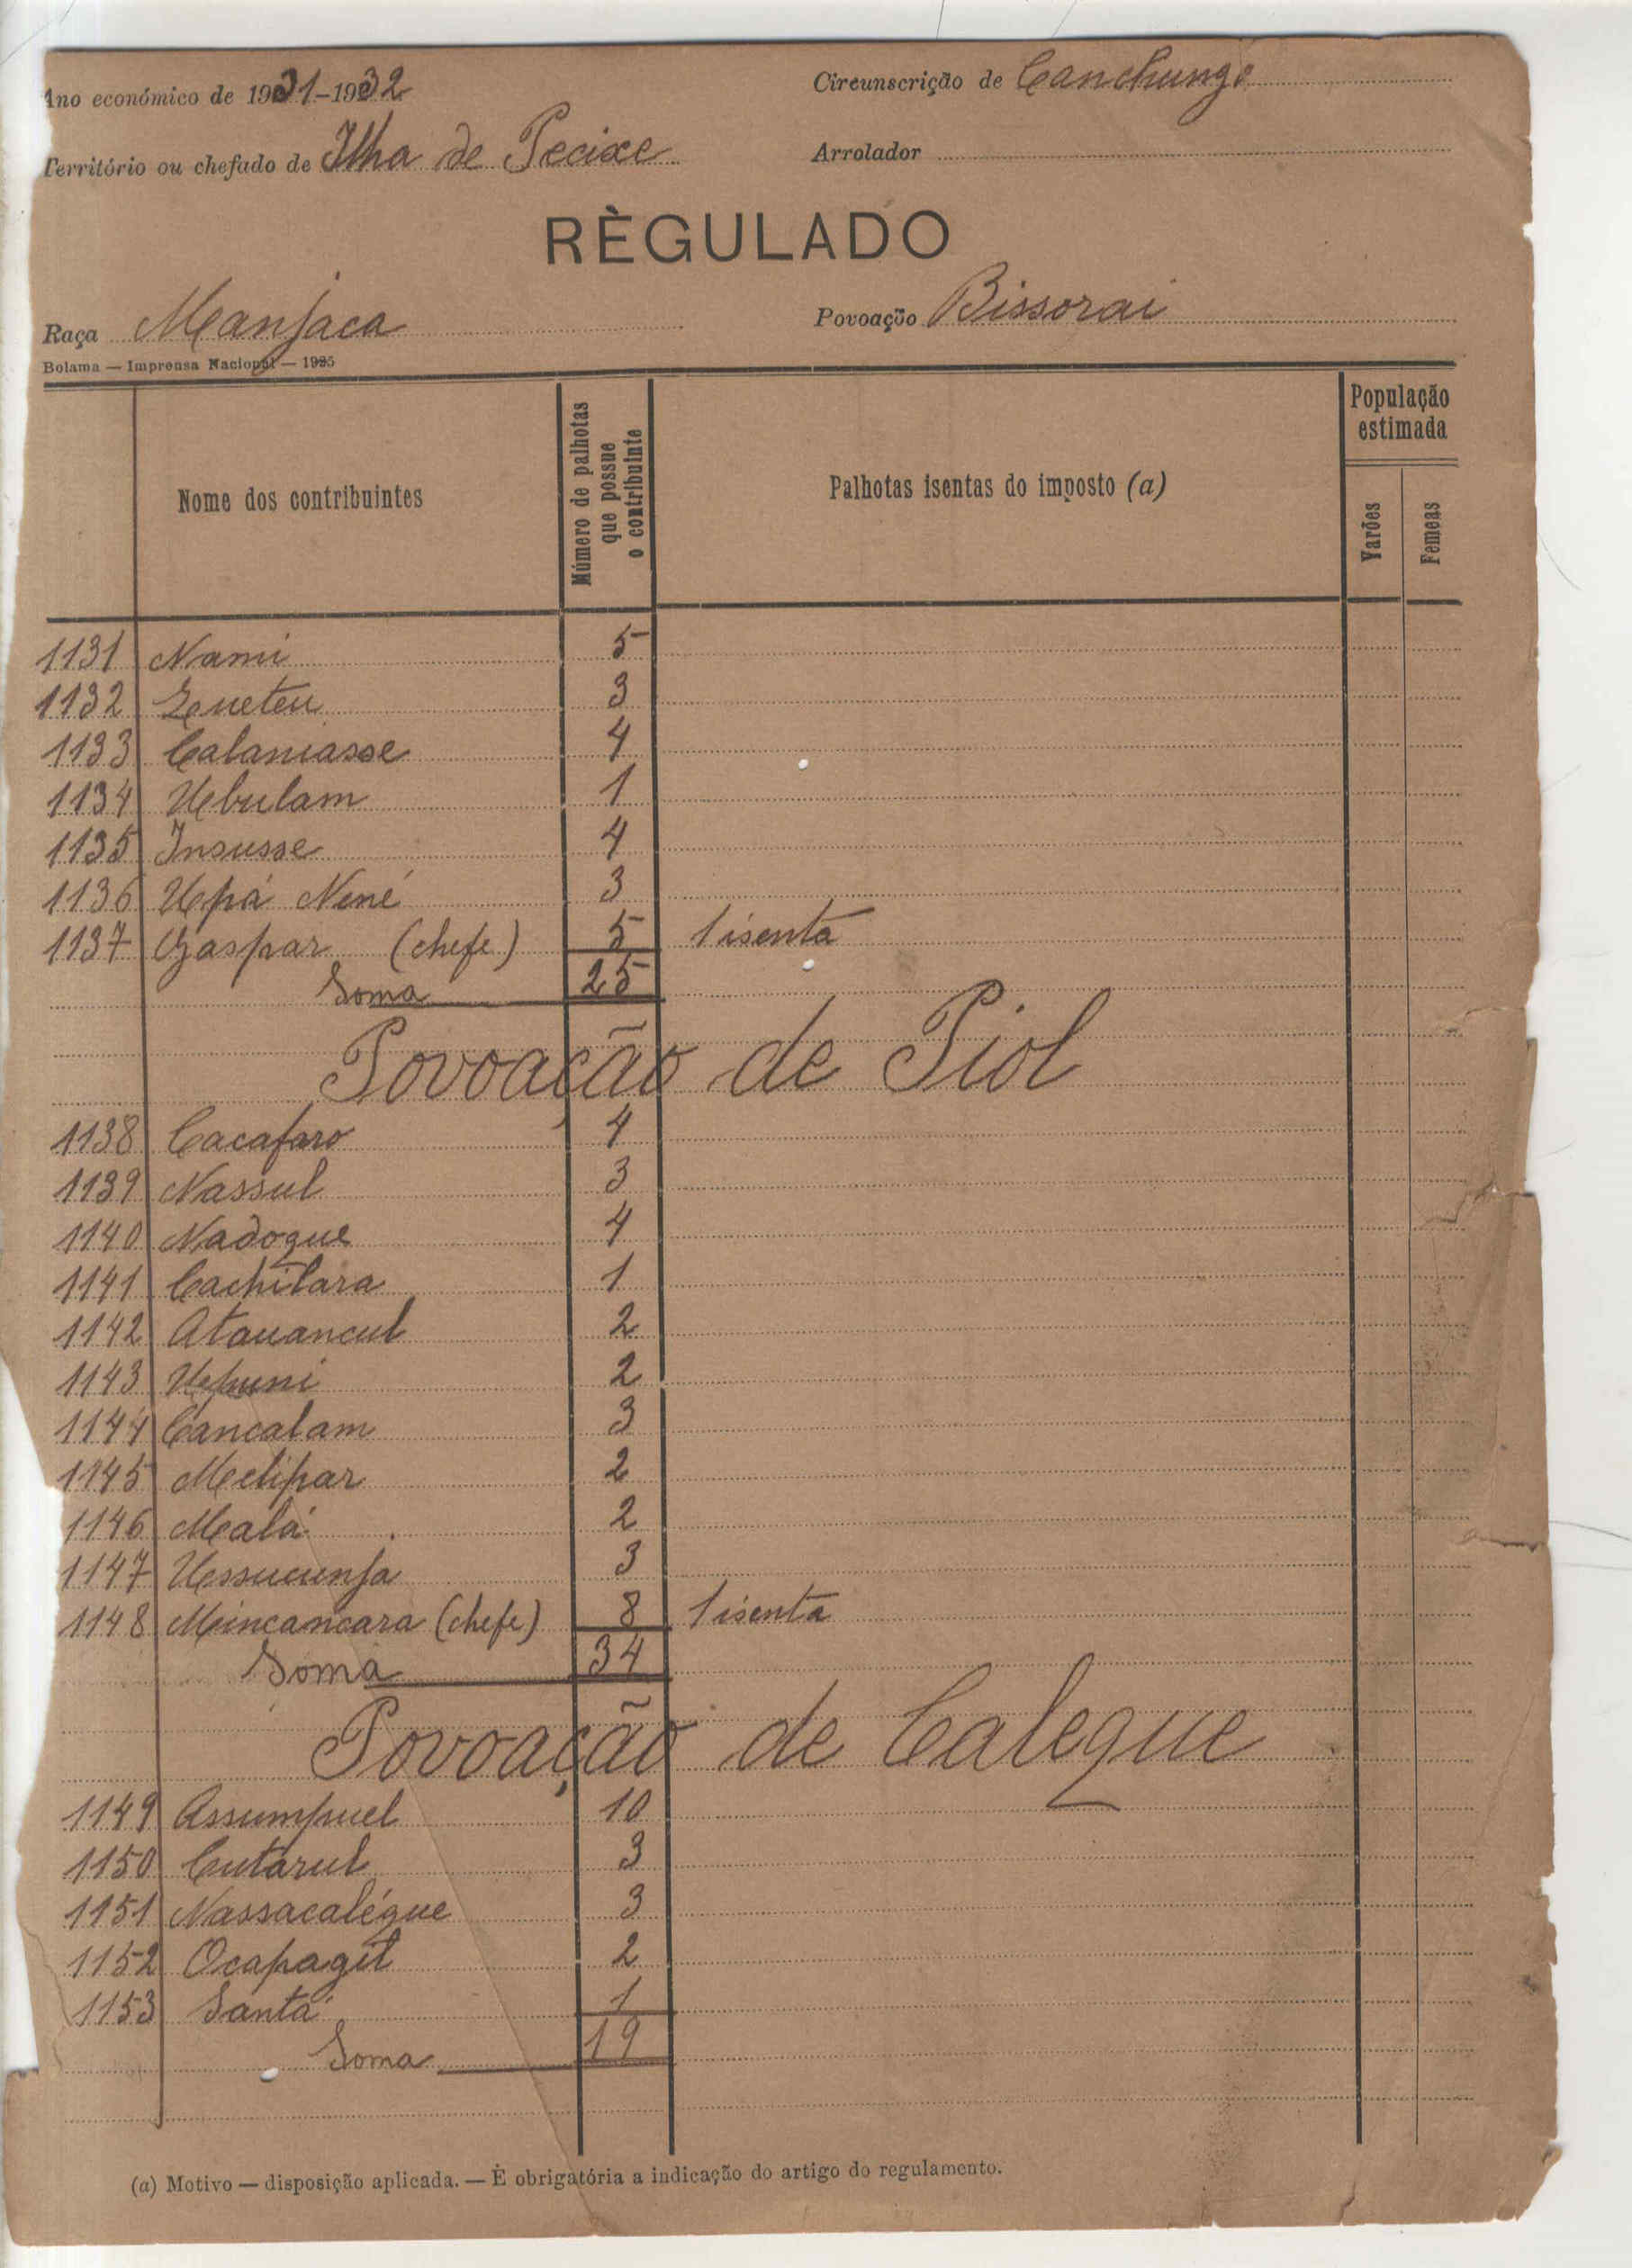 Ano económico de 1931-1932
Circunscrição de Canchungo
Território ou chefado de Ilha de Pecixe
Arrolador
RÈGULADO
Raça Manjaca
Povoação Bissorai
Bolama — Imprensa Nacional — 1925
Nome dos contribuintes
Número de palhotas que possue o contribuinte
Palhotas isentas do imposto (a)
População estimada
Varões
Femeas
1131 Nami 5
1132 Zueteu 3
1133 Calaniasse 4
1134 Ubulam 1
1135 Insusse 4
1136 Upá Nené 3
1137 Gaspar (chefe) 5 1 isenta
Soma 25
Povoação de Piol
1138 Cacafaro 4
1139 Nassul 3
1140 Nadoque 4
1141 Cachilara 1
1142 Atauancul 2
1143 Upuni 2
1144 Cancalam 3
1145 Melipar 2
1146 Malá 2
1147 Ussucunja 3
1148 Mincancara (chefe) 8 1 isenta
Soma 34
Povoação de Caleque
1149 Assumpuel 10
1150 Cutarul 3
1151 Nassacaléque 3
1152 Ocapagil 2
1153 Santa 1
Soma 19
(a) Motivo — disposição aplicada. — È obrigatória a indicação do artigo do regulamento.